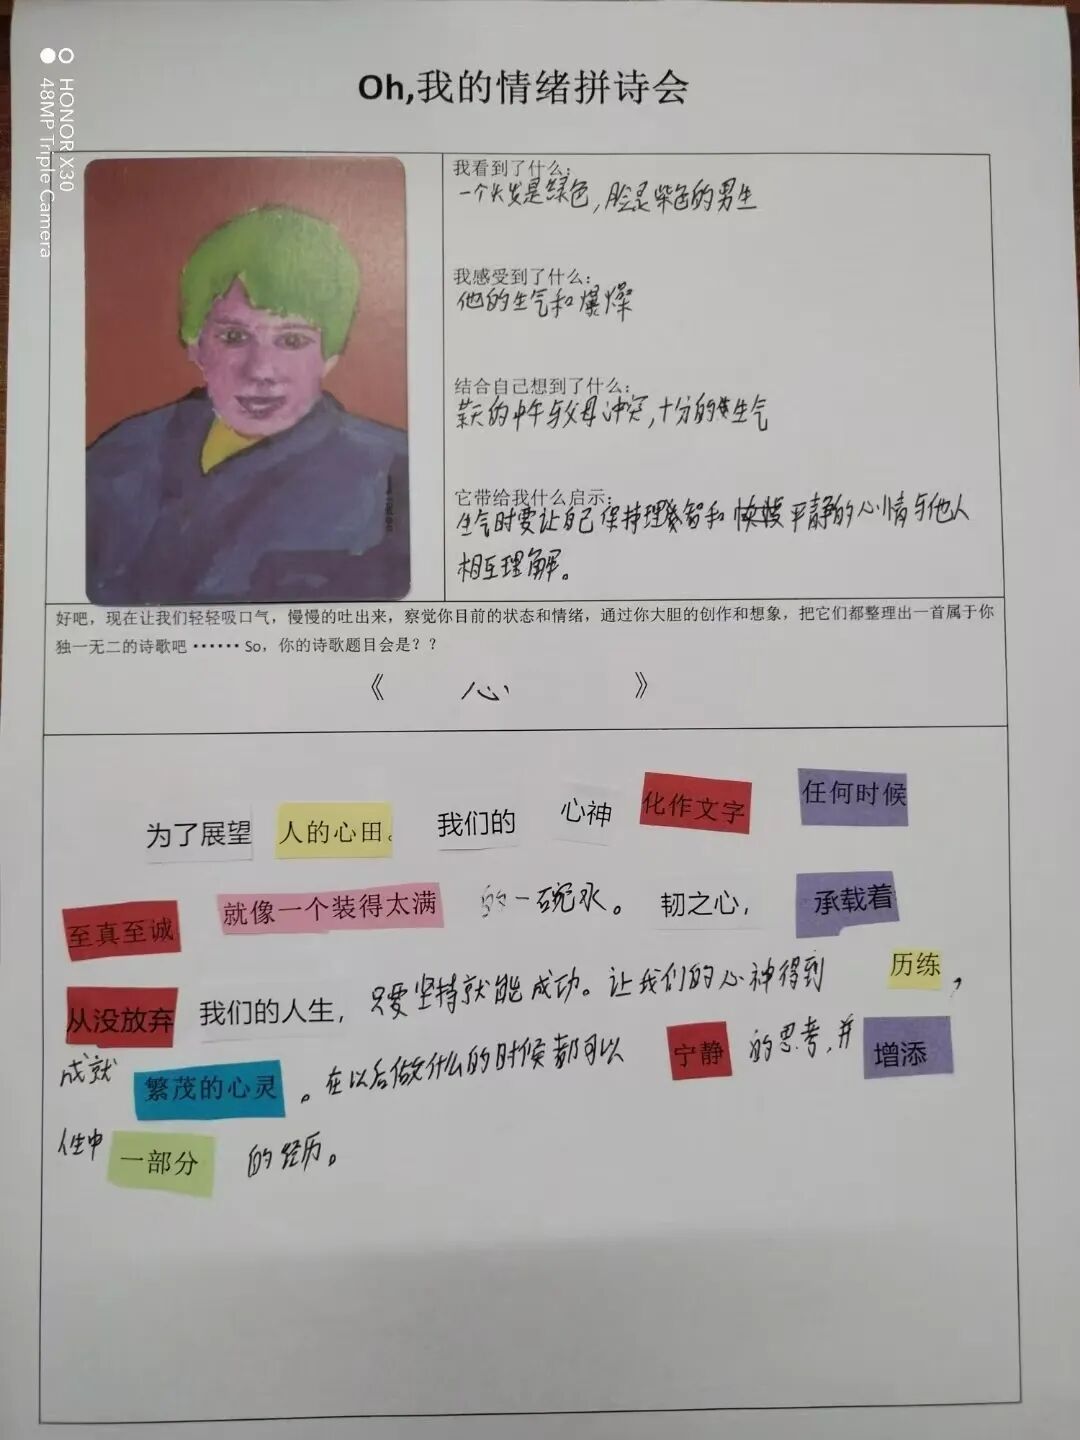 HONOR X30
48MP Triple Camera
Oh,我的情绪拼诗会
我看到了什么:
一个头发是绿色,脸是紫色的男生
我感受到了什么:
他的生气和爆燥
结合自己想到了什么:
某天的中午与父母冲突,十分的生气
它带给我什么启示:
生气时要让自己保持理智和平静的心情与他人
相互理解。
好吧，现在让我们轻轻吸口气，慢慢的吐出来，察觉你目前的状态和情绪，通过你大胆的创作和想象，把它们都整理出一首属于你
独一无二的诗歌吧 •••••• So，你的诗歌题目会是？？
《 心 》
为了展望 人的心田。 我们的 心神 化作文字 任何时候
至真至诚 就像一个装得太满 的一碗水。 韧之心, 承载着
从没放弃 我们的人生， 只要坚持就能成功。让我们的心神得到 历练，
成就 繁茂的心灵 。在以后做什么的时候都可以 宁静 的思考,并 增添
人生中 一部分 的经历。